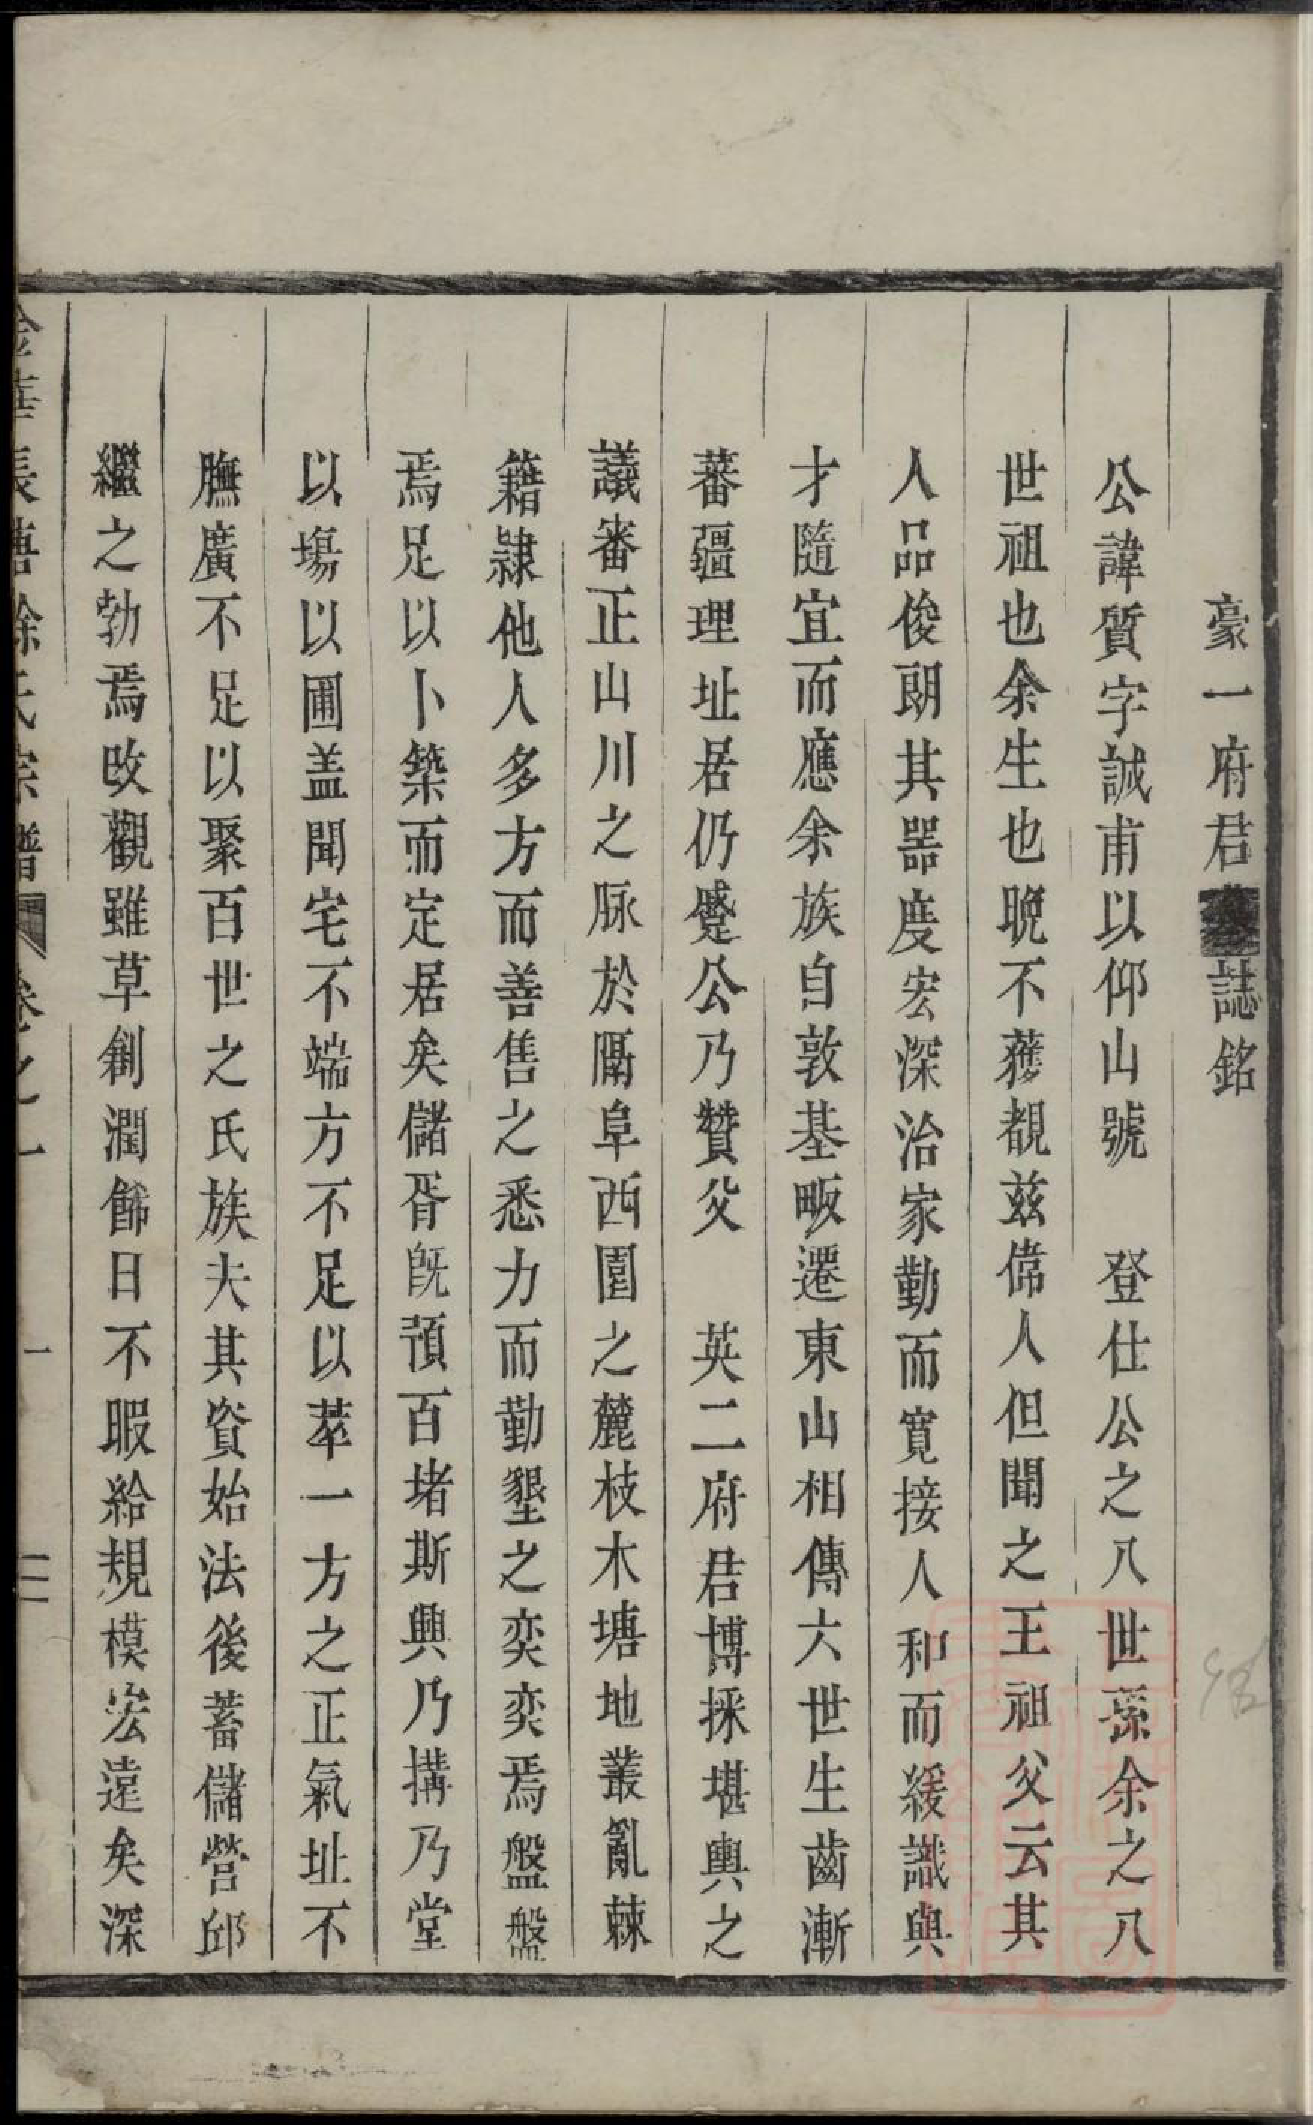 豪一府君誌銘
公諱質字誠甫以仰山號　登仕公之八世孫余之八
世祖也余生也晚不獲覩兹偉人但聞之王祖父云其
人品俊朗其器度宏深治家勤而寬接人和而緩識與
才隨宜而應余族自敦基畈遷東山相傳六世生齒漸
蕃疆理址居仍蹙公乃贊父　英二府君博採堪輿之
議審正山川之脉於隔阜西園之麓枝木塘地叢亂棘
籍隷他人多方而善售之悉力而勤墾之奕奕焉盤盤
焉足以卜築而定居矣儲胥旣預百堵斯興乃搆乃堂
以塲以圃盖聞宅不端方不足以萃一方之正氣址不
膴廣不足以聚百世之氏族夫其資始法後蓄儲營邱
繼之勃焉改觀雖草創潤餙日不暇給規模宏遠矣深
長塘徐氏宗譜　卷之一　一　二